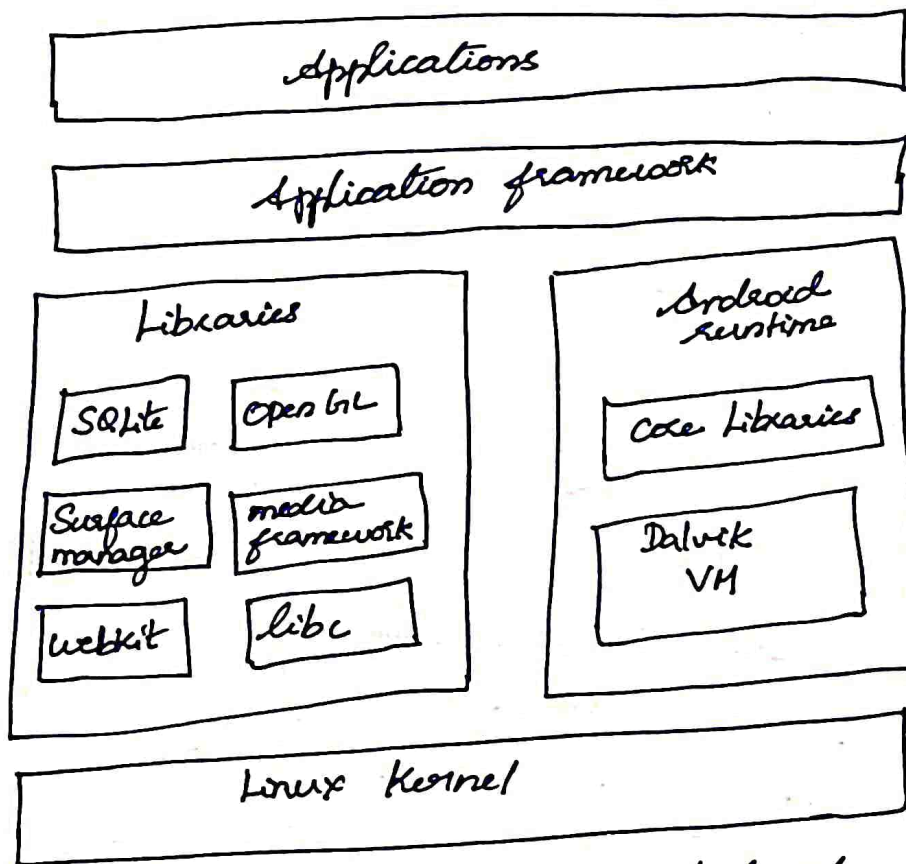 Applications
Application framework
Libraries
SQLite
Open GL
Surface
manager
media
framework
webkit
libc
Android
runtime
Core Libraries
Dalvik
VM
Linux Kernel